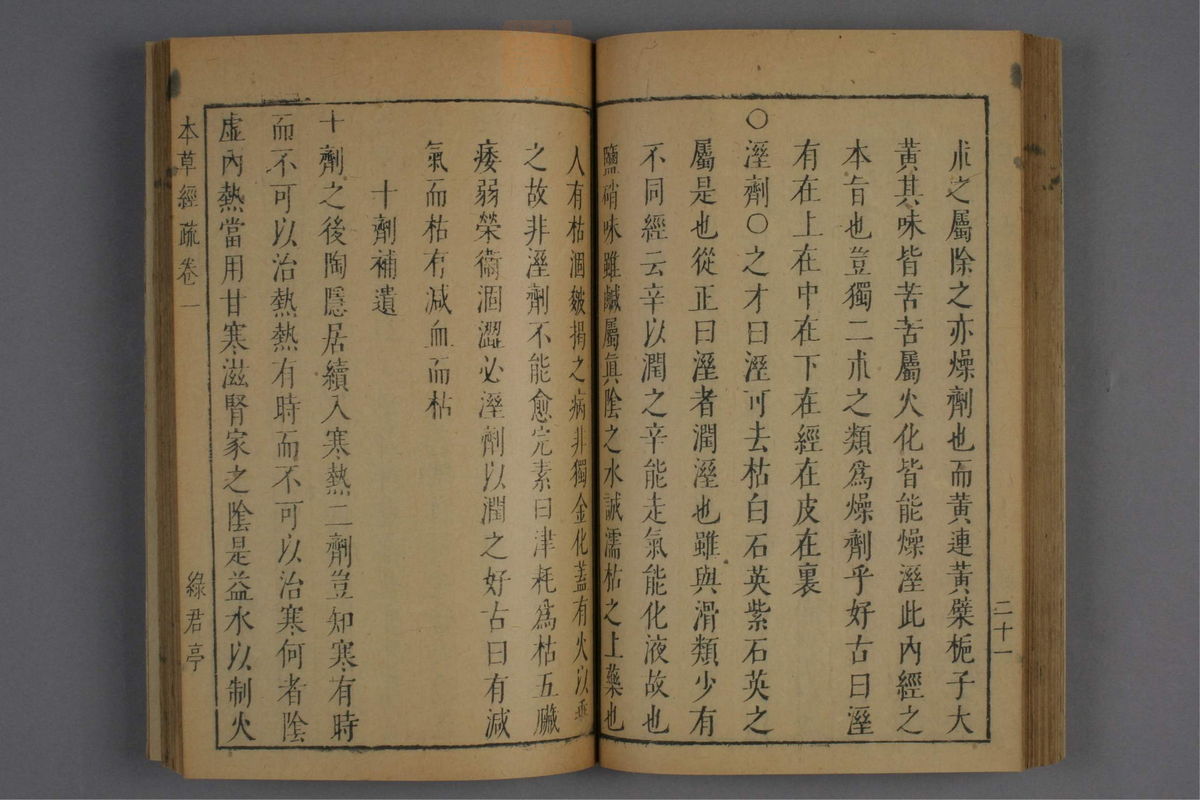 二十一
朮之屬除之亦燥劑也而黃連黃蘗梔子大
黃其味皆苦苦屬火化皆能燥溼此內經之
本旨也豈獨二朮之類為燥劑乎好古曰溼
有在上在中在下在經在皮在裏
〇溼劑〇之才曰溼可去枯白石英紫石英之
屬是也從正曰溼者潤溼也雖與滑類少有
不同經云辛以潤之辛能走氣能化液故也
鹽硝味雖鹹屬眞陰之水誠濡枯之上藥也
人有枯涸皴揭之病非獨金化蓋有火以乘
之故非溼劑不能愈完素曰津耗為枯五臟
痿弱榮衞涸澀必溼劑以潤之好古曰有減
氣而枯有減血而枯
十劑補遺
十劑之後陶隱居續入寒熱二劑豈知寒有時
而不可以治熱熱有時而不可以治寒何者陰
虛內熱當用甘寒滋腎家之陰是益水以制火
本草經疏卷一
綠君亭